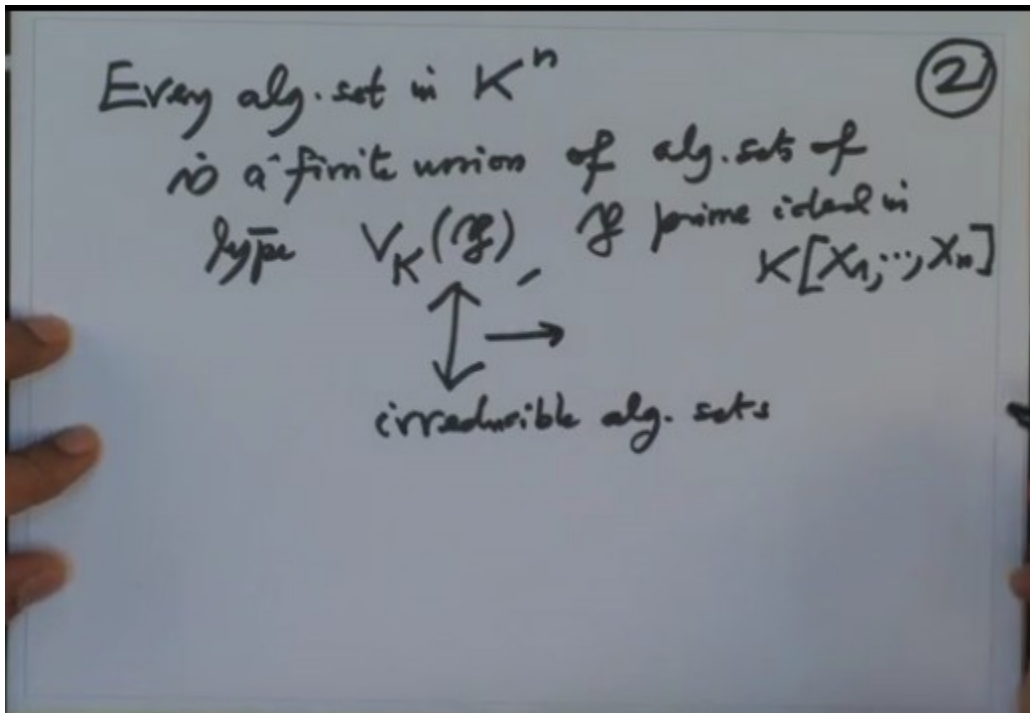 Every alg. set in Kⁿ
②
is a finite union of alg. sets of
type V_K(𝔭), 𝔭 prime ideal in
K[X₁,…,Xₙ]
irreducible alg. sets